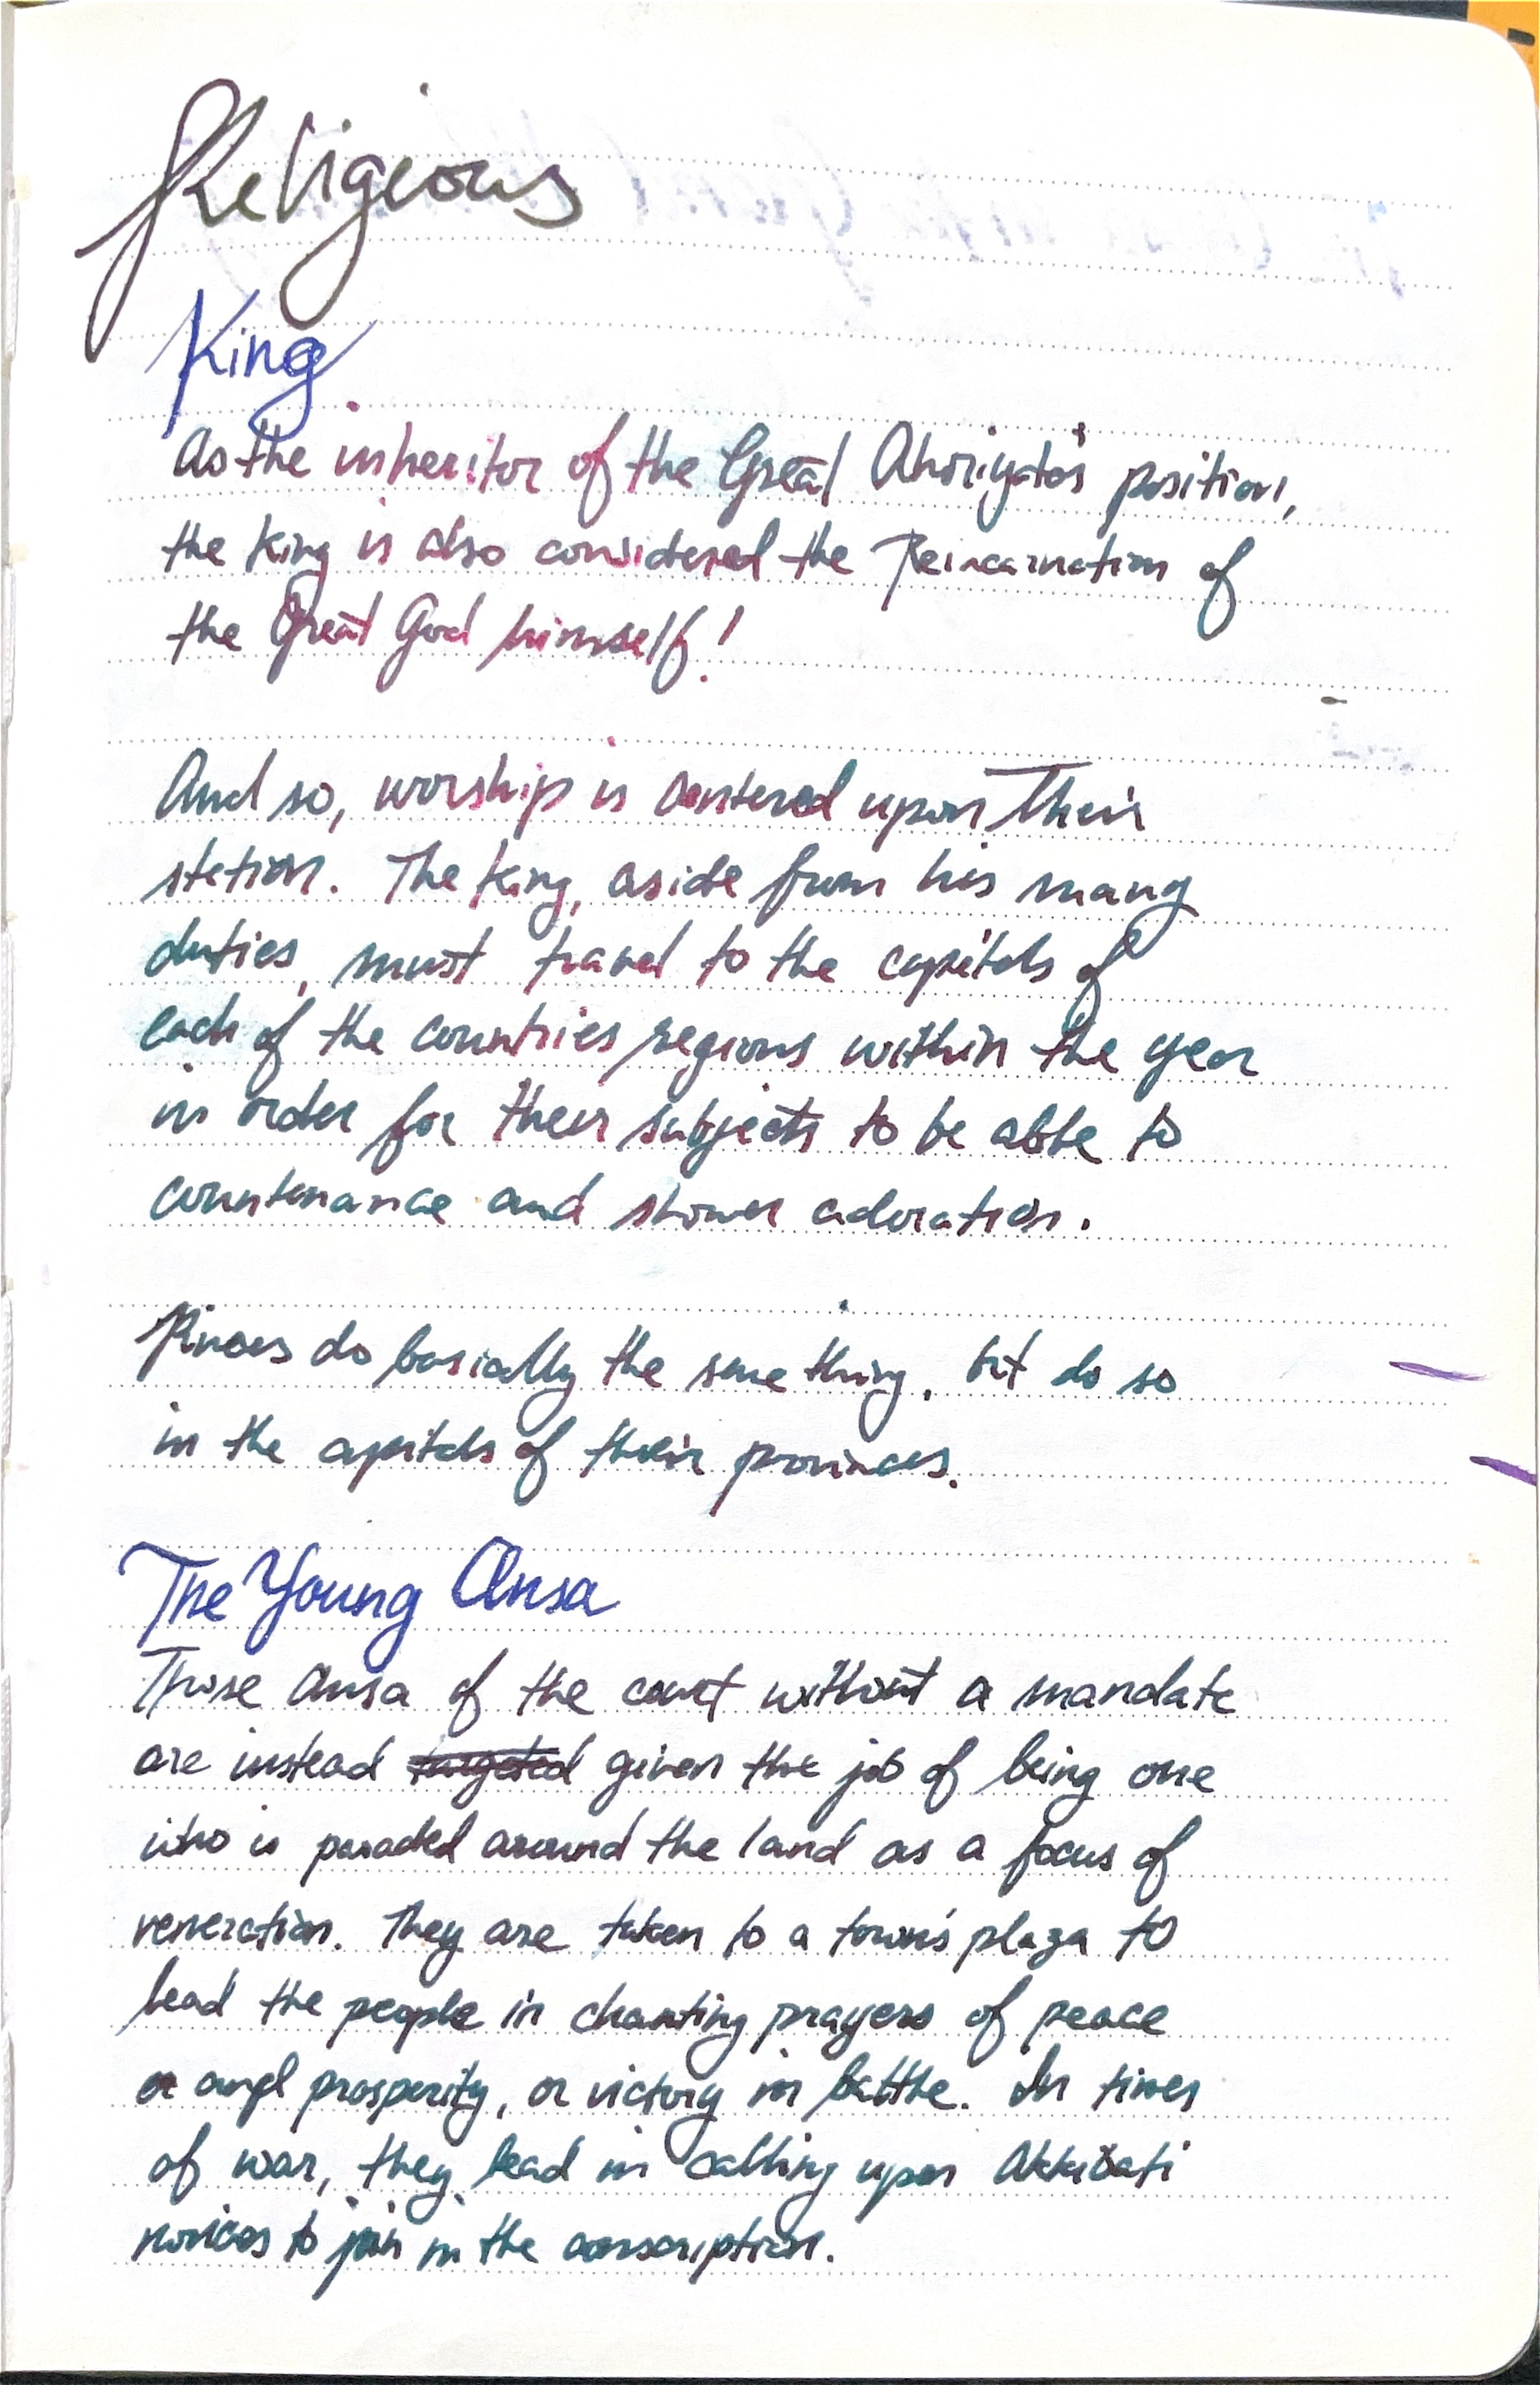 Religeous
King
As the inheritor of the Great Ahoriyato's position,
the King is also considered the Reincarnation of
the Great God himself!
And so, worship is centered upon Their
station. The King, aside from his many
duties, must travel to the capitals of
each of the countries regions within the year
in order for their subjects to be able to
countenance and shower adoration.
Princes do basically the same thing, but do so
in the capitals of their provinces.
The Young Ansa
Those Ansa of the court without a mandate
are instead targeted given the job of being one
who is paraded around the land as a focus of
veneration. They are taken to a town's plaza to
lead the people in chanting prayers of peace
or and prosperity, or victory in battle. In times
of war, they lead in calling upon Akkibati
novices to join in the conscription.